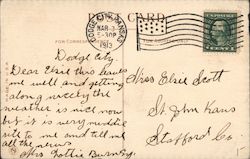 CARD
DODGE CITY, KANSAS
MAR
5-30P
1913
FOR CORRESPONDENCE
Dodge City
Dear Elsie this leaves
me well and getting
along nicely the
weather is nice now
but it is very muddy
write to me and tell me
all the news
Miss Lottie
Miss Elsie Scott
St John Kans
Stafford Co